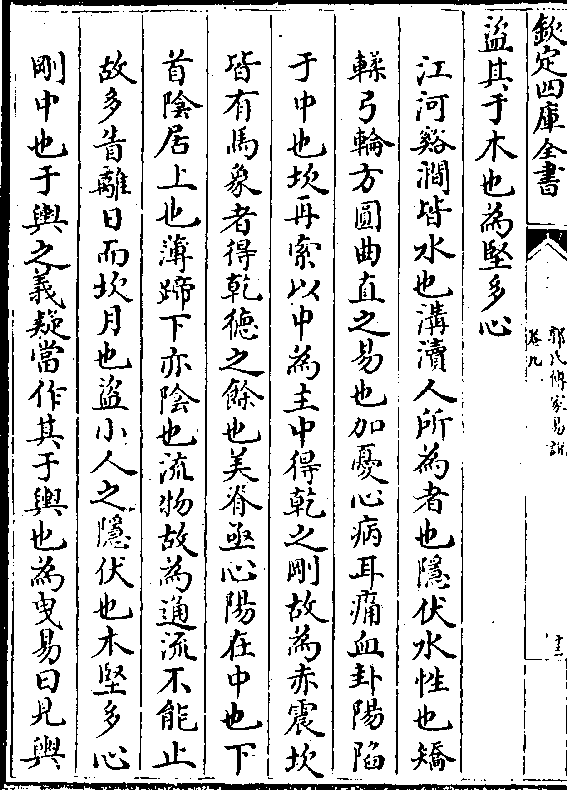 欽定四庫全書
郭氏傳家易說
卷九
十三
盜其于木也為堅多心
江河谿澗皆水也溝瀆人所為者也隱伏水性也矯
輮弓輪方圓曲直之易也加憂心病耳痛血卦陽陷
于中也坎再索以中為主中得乾之剛故為赤震坎
皆有馬象者得乾德之餘也美脊亟心陽在中也下
首陰居上也薄蹄下亦陰也流物故為通流不能止
故多眚離日而坎月也盜小人之隱伏也木堅多心
剛中也于輿之義疑當作其于輿也為曳易曰見輿